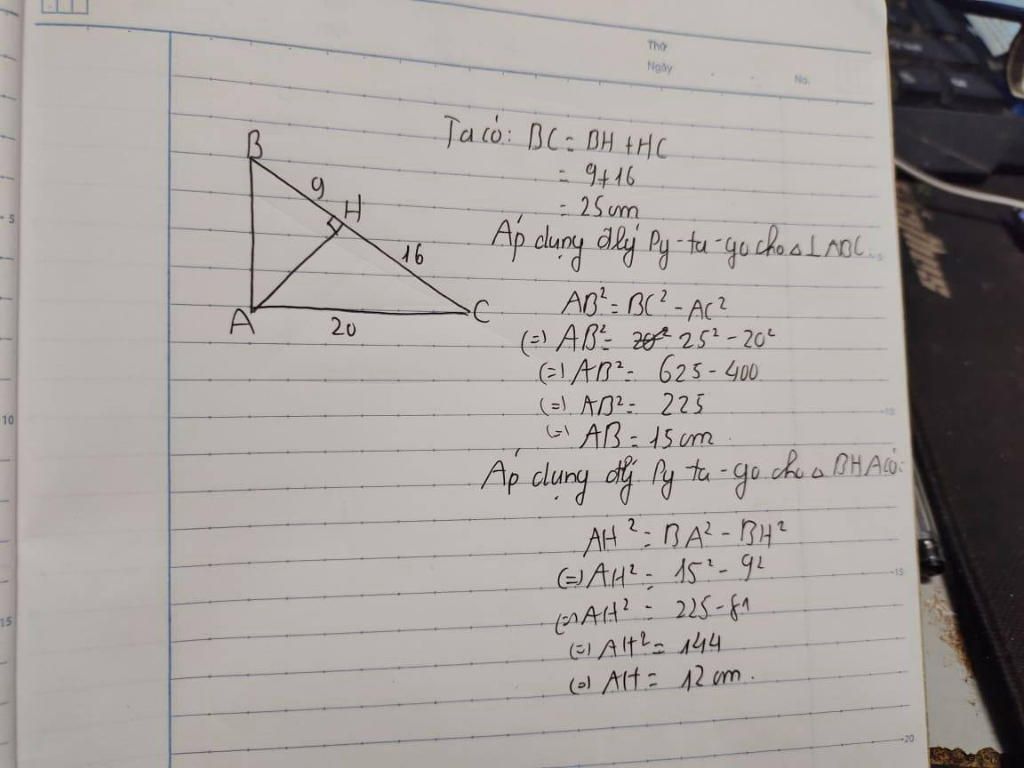 Thứ
Ngày
No.
B
9
H
16
A
20
C
Ta có: BC = BH + HC
= 9+16
= 25cm
Áp dụng đlý Py-ta-go cho △⊥ABC
AB² = BC² - AC²
(=) AB² = 20² 25² - 20²
(=) AB² = 625 - 400
(=) AB² = 225
(=) AB = 15cm.
Áp dụng đlý Py-ta-go cho △BHA có:
AH² = BA² - BH²
(=) AH² = 15² - 9²
(=) AH² = 225-81
(=) AH² = 144
(=) AH = 12cm.
5
10
15
10
15
20